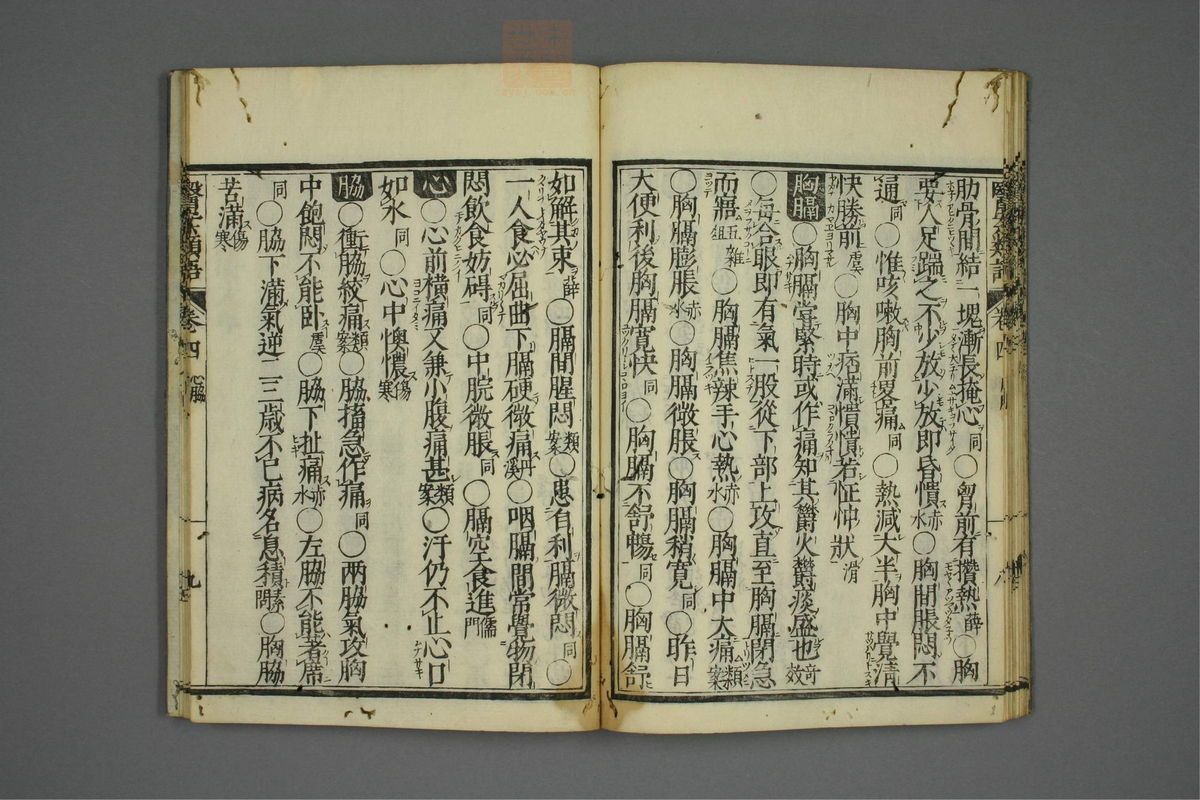 肋骨間結一塊漸長掩心同○胷前有攢熱薛○胸
要人足踹之不少放少放即昏憒赤水○胸間脹悶不
通同○惟咳嗽胸前畧痛同○熱減大半胸中覺清
快勝前虞○胸中痞滿憒憒若怔忡狀滑
胸膈○胸膈常緊時或作痛知其欝火欝痰盛也奇效
○每合眼即有氣一股從下部上攻直至胸膈閉急
而寤五雜俎○胸膈焦辣手心熱赤水○胸膈中大痛類案
○胸膈膨脹赤水○胸膈微脹○胸膈稍寬同○昨日
大便利後胸膈寬快同○胸膈不舒暢同○胸膈舒
如解其束薛○膈間腥悶類案○患有利膈微悶同○
一人食必屈曲下膈硬微痛丹溪○咽膈間常覺物閉
悶飲食妨碍同○中脘微脹同○膈空食進儒門
心○心前橫痛又兼小腹痛甚類案○汗仍不止心口
如氷同○心中懊憹傷寒
脇○衝脇絞痛類案○脇搐急作痛同○兩脇氣攻胸
中飽悶不能卧虞○脇下扯痛赤水○左脇不能著席
同○脇下滿氣逆二三歳不已病名息積素問○胸脇
苦滿傷寒
醫學類語 卷四 心脇 九